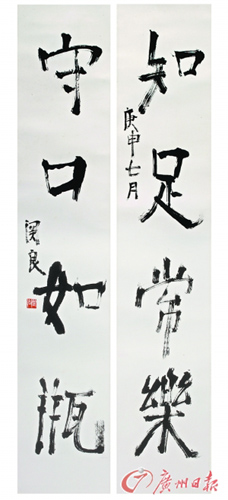 知足常樂
庚申七月
守口如瓶
関良
廣州日报